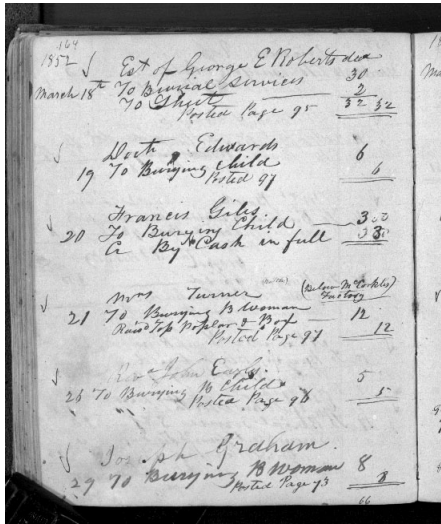 164
1852 Est of George E Roberts dec
March 18th To Burial Services 30
To Shirt 2
Posted Page 95 32 32
Doct Edwards
19 To Burying Child 6
Posted 97 6
Francis Giles
20 To Burying Child 3
Cr By Cash in full 3
Mrs Turner (Below McCorkles
Factory)
21 To Burying B Woman 12
Raisd Top Poplar & Box
Posted Page 97 12
Revd John Early
26 To Burying B Child 5
Posted Page 98 5
Joseph Graham
29 To Burying B Woman 8
Posted Page 73 8
66